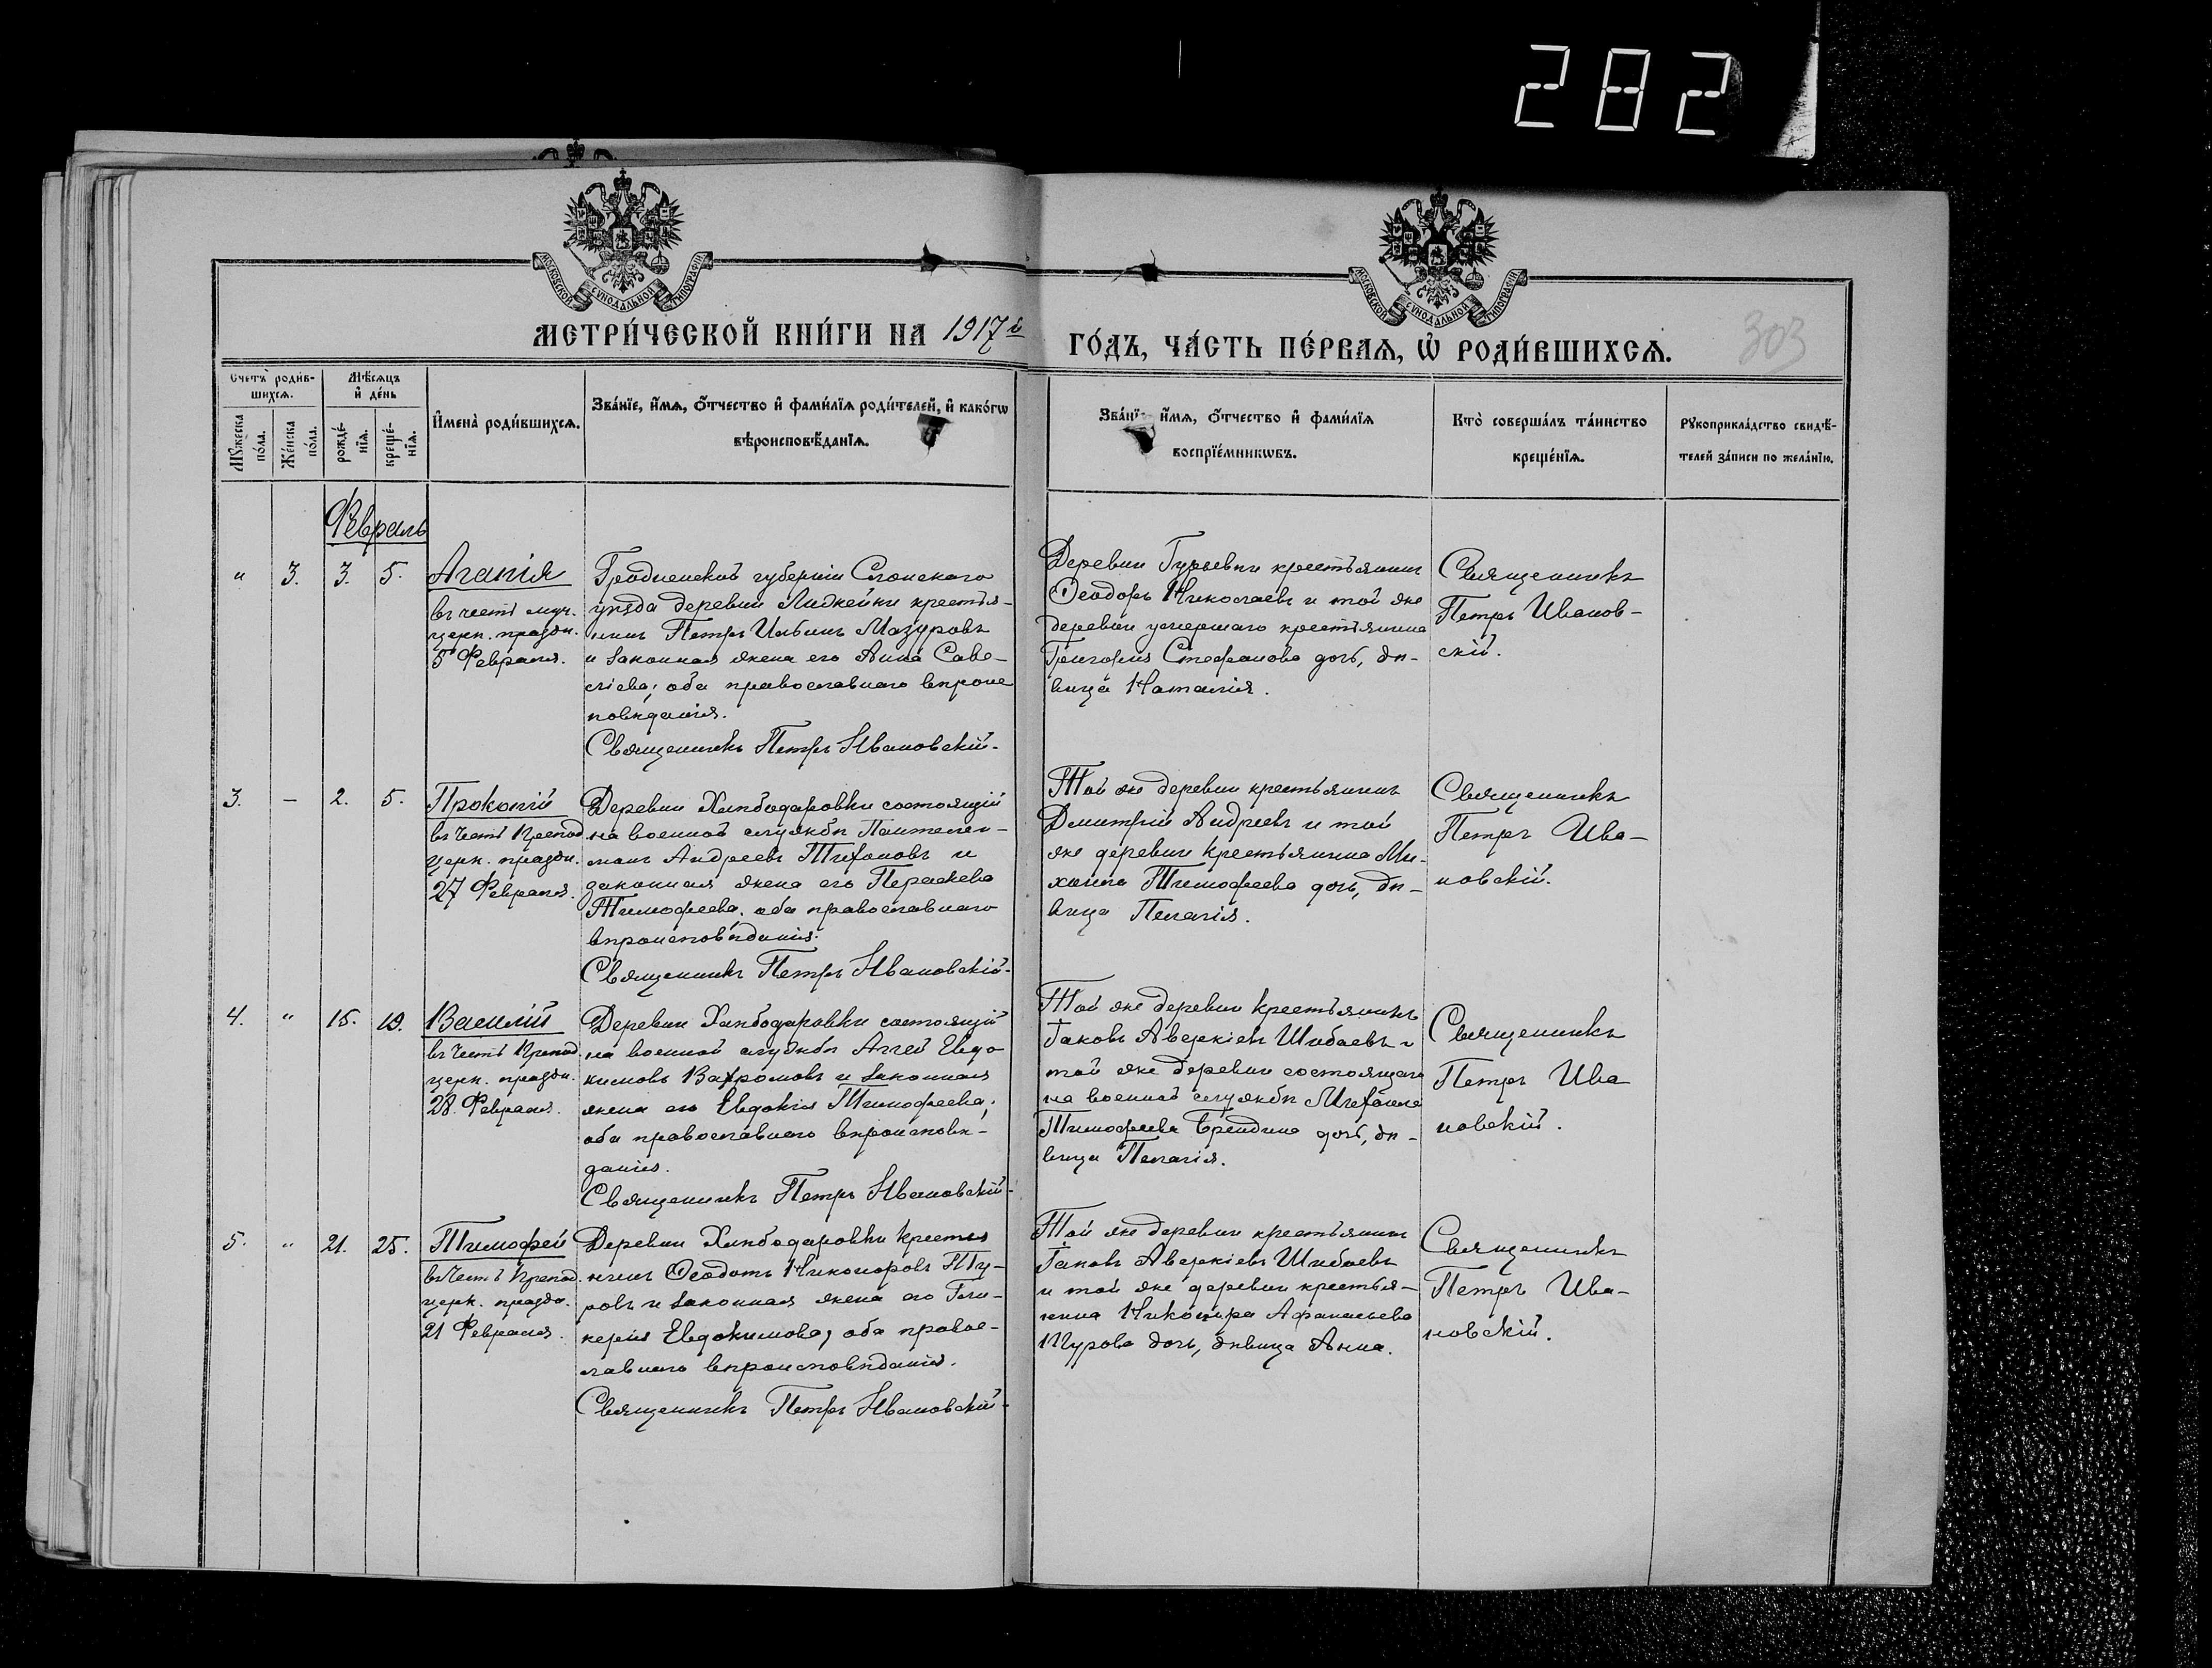 282
МОСКОВСКОЙ СѴНОДАЛЬНОЙ ТИПОГРАФІИ
МОСКОВСКОЙ СѴНОДАЛЬНОЙ ТИПОГРАФІИ
МЕТРИ́ЧЕСКОЙ КНИ́ГИ НА 1917й
ГО́ДЪ, ЧА́СТЬ ПЕ́РВАЯ, Ѡ҆ РОДИ́ВШИХСѦ.
303
Счетъ роди́в-
шихсѧ.
Мꙋ́жеска
по́ла.
Же́нска
по́ла.
Мѣ́сѧцъ
и҆ де́нь
рожде́-
нїѧ.
креще́-
нїѧ.
И҆мена̀ роди́вшихсѧ.
Зва́нїе, и҆́мѧ, ѻ҆́тчество и҆ фами́лїѧ роди́телей, и҆ како́гѡ
вѣроисповѣ́данїѧ.
Зва́нїе, и҆́мѧ, ѻ҆́тчество и҆ фами́лїѧ
воспрїе́мникѡвъ.
Кто̀ соверша́лъ та́инство
креще́нїѧ.
Рꙋкоприкла́дство свидѣ́-
телей за́писи по жела́нїю.
Февраль
" 3. 3. 5.
Агапія
въ честь муч.
церк. праздн.
5 Февраля.
Гродненской губерніи Слонскаго
уѣзда деревни Лидкейки крестья-
нинъ Петръ Ильинъ Мазуровъ
и законная жена его Анна Саве-
ліева; оба православнаго вѣроис
повѣданія.
Священникъ Петръ Ивановскій.
Деревни Гурьевки крестьянинъ
Ѳеодоръ Николаевъ и той же
деревни умершаго крестьянина
Григорія Стефанова дочь, дѣ-
вица Наталія.
Священникъ
Петръ Иванов-
скій.
3. – 2. 5.
Прокопій
въ честь Препод.
церк. праздн.
27 Февраля.
Деревни Хлѣбодаровки состоящій
на военной службѣ Пантелей-
монъ Андреевъ Тифоновъ и
законная жена его Параскева
Тимофеева, оба православнаго
вѣроисповѣданія.
Священникъ Петръ Ивановскій.
Той же деревни крестьянинъ
Дмитрій Андреевъ и той
же деревни крестьянина Ми-
хаила Тимофеева дочь, дѣ-
вица Пелагія.
Священникъ
Петръ Ива-
новскій.
4. " 15. 19.
Василій
въ честь Препод.
церк. праздн.
28. Февраля.
Деревни Хлѣбодаровки состоящій
на военной службѣ Аггей Евдо
кимовъ Вахромовъ и законная
жена его Евдокія Тимофеева,
оба православнаго вѣроисповѣ-
данія.
Священникъ Петръ Ивановскій.
Той же деревни крестьянинъ
Іаковъ Аверкіевъ Шибаевъ и
той же деревни состоящаго
на военной службѣ Михаила
Тимофеева Брендина дочь, дѣ-
вица Пелагія.
Священникъ
Петръ Ива
новскій.
5. " 21. 25.
Тимофей
въ честь Препод.
церк. праздн.
21 Февраля.
Деревни Хлѣбодаровки крестья
нинъ Ѳеодотъ Никоноровъ Шу-
ровъ и законная жена его Гли-
керія Евдокимова, оба правос-
лавнаго вѣроисповѣданія.
Священникъ Петръ Ивановскій.
Той же деревни крестьянинъ
Іаковъ Аверкіевъ Шибаевъ
и той же деревни крестья-
нина Никонора Афанасьева
Шурова дочь, дѣвица Анна.
Священникъ
Петръ Ива-
новскій.